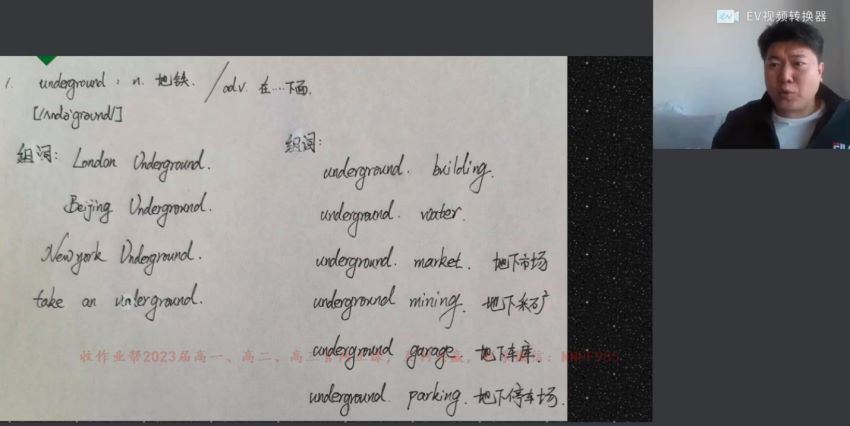 EV视频转换器
1. underground: n. 地铁. / adv. 在…下面.
组词: London Underground.
Beijing Underground.
New york Underground.
take an underground.
组词:
underground. building.
underground. water.
underground. market. 地下市场
underground mining. 地下采矿
underground garage. 地下车库.
underground. parking. 地下停车场.
收作业帮2023届高一、高二、高三